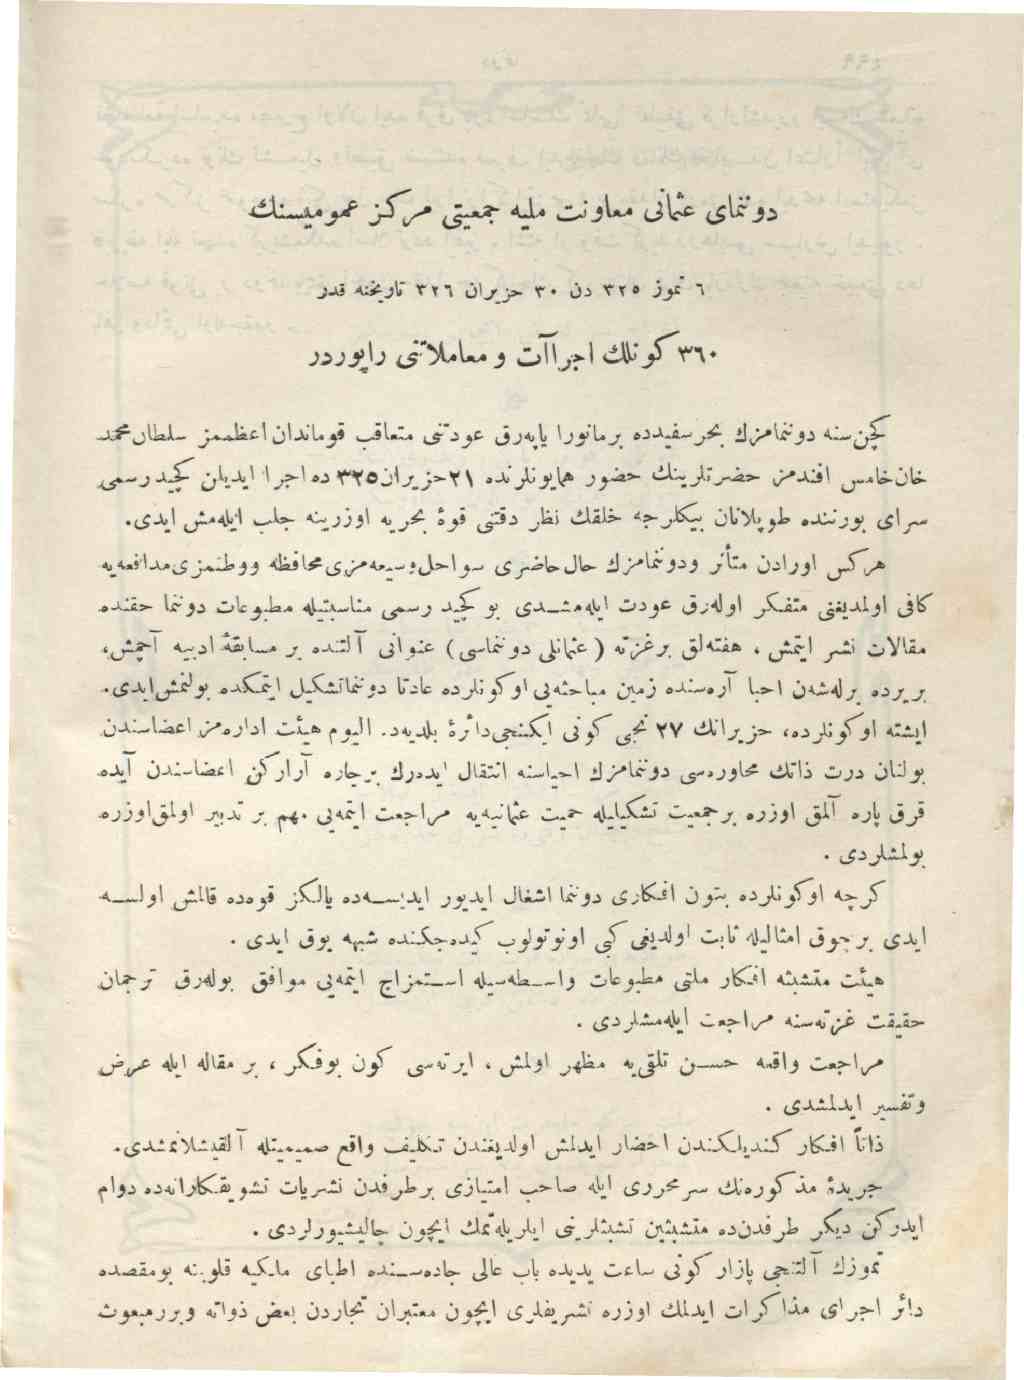 دوننمای عثمانی معاونت ملیه جمعیتی مرکز عمومیسنك
٦ تموز ٣٢٥ دن ٣٠ حزیران ٣٢٦ تاریخنه قدر
٣٦٠ كونلك اجراآت و معاملاتنی راپوردر
کچن سنه دوننمامزك بحرسفیدده برمانورا یاپه‌رق عودتنی متعاقب قوماندان اعظممز سلطان محمد
خان خامس افندمز حضرتلرینك حضور همایونلرنده ٢١ حزیران ٣٢٥ ده اجرا ایدیلن کچید رسمی
سرای بورننده طوپلانان بیکلرجه خلقك نظر دقتنی قوهٔ بحریه اوزرینه جلب ایله‌مش ایدی.
هرکس اورادن متأثر ودوننمامزك حال حاضری سواحل وسیعه‌مزی محافظه ووطنمزی مدافعه‌یه
کافی اولمدیغنی متفکر اوله‌رق عودت ایله‌مشدی بو کچید رسمی مناسبتیله مطبوعات دوننما حقنده
مقالات نشر ایتمش ، هفته‌لق برغزته (عثمانلی دوننماسی) عنوانی آلتنده بر مسابقهٔ ادبیه آچمش،
بریرده برله‌شه‌ن احبا آره‌سنده زمین مباحثه‌یی اوکونلرده عادتا دوننما تشکیل ایتمکده بولنمش ایدی.
ایشته اوکونلرده، حزیرانك ٢٧ نجی کونی ایکنجی دائرهٔ بلدیه‌ده. الیوم هیئت اداره‌مز اعضاسندن
بولنان درت ذاتك محاوره‌سی دوننمامزك احیاسنه انتقال ایده‌رك برچاره آرارکن اعضاسندن آیده
قرق پاره آلمق اوزره برجمعیت تشکیلیله حمیت عثمانیه‌یه مراجعت ایتمه‌یی مهم بر تدبیر اولمق اوزره
بولمشلردی .
کرچه اوکونلرده بتون افکاری دوننما اشغال ایدیور ایدیسه‌ده یالکز قوه‌ده قالمش اولسه
ایدی برچوق امثالیله ثابت اولدیغی کبی اونوتولوب کیده‌جکنده شبهه یوق ایدی .
هیئت متشبثه افکار ملتی مطبوعات واسطه‌سیله استمزاج ایتمه‌یی موافق بوله‌رق ترجمان
حقیقت غزته‌سنه مراجعت ایله‌مشلردی .
مراجعت واقعه حسن تلقی‌یه مظهر اولمش ، ایرته‌سی کون بوفکر ، بر مقاله ایله عرض
وتفسیر ایدلمشدی .
ذاتاً افکار کندیلکندن احضار ایدلمش اولدیغندن تکلیف واقع صمیمیتله آلقیشلانمشدی.
جریدهٔ مذکوره‌نك سرمحرری ایله صاحب امتیازی برطرفدن نشریات تشویقکارانه‌ده دوام
ایدرکن دیکر طرفدن‌ده متشبثین تشبثلرینی ایلریله‌تمك ایچون چالیشیورلردی .
تموزك آلتنجی پازار کونی ساعت یدیده باب عالی جاده‌سنده اطبای ملکیه قلوبنه بومقصده
دائر اجرای مذاکرات ایدلمك اوزره تشریفلری ایچون معتبران تجاردن بعض ذواته وبررمبعوث